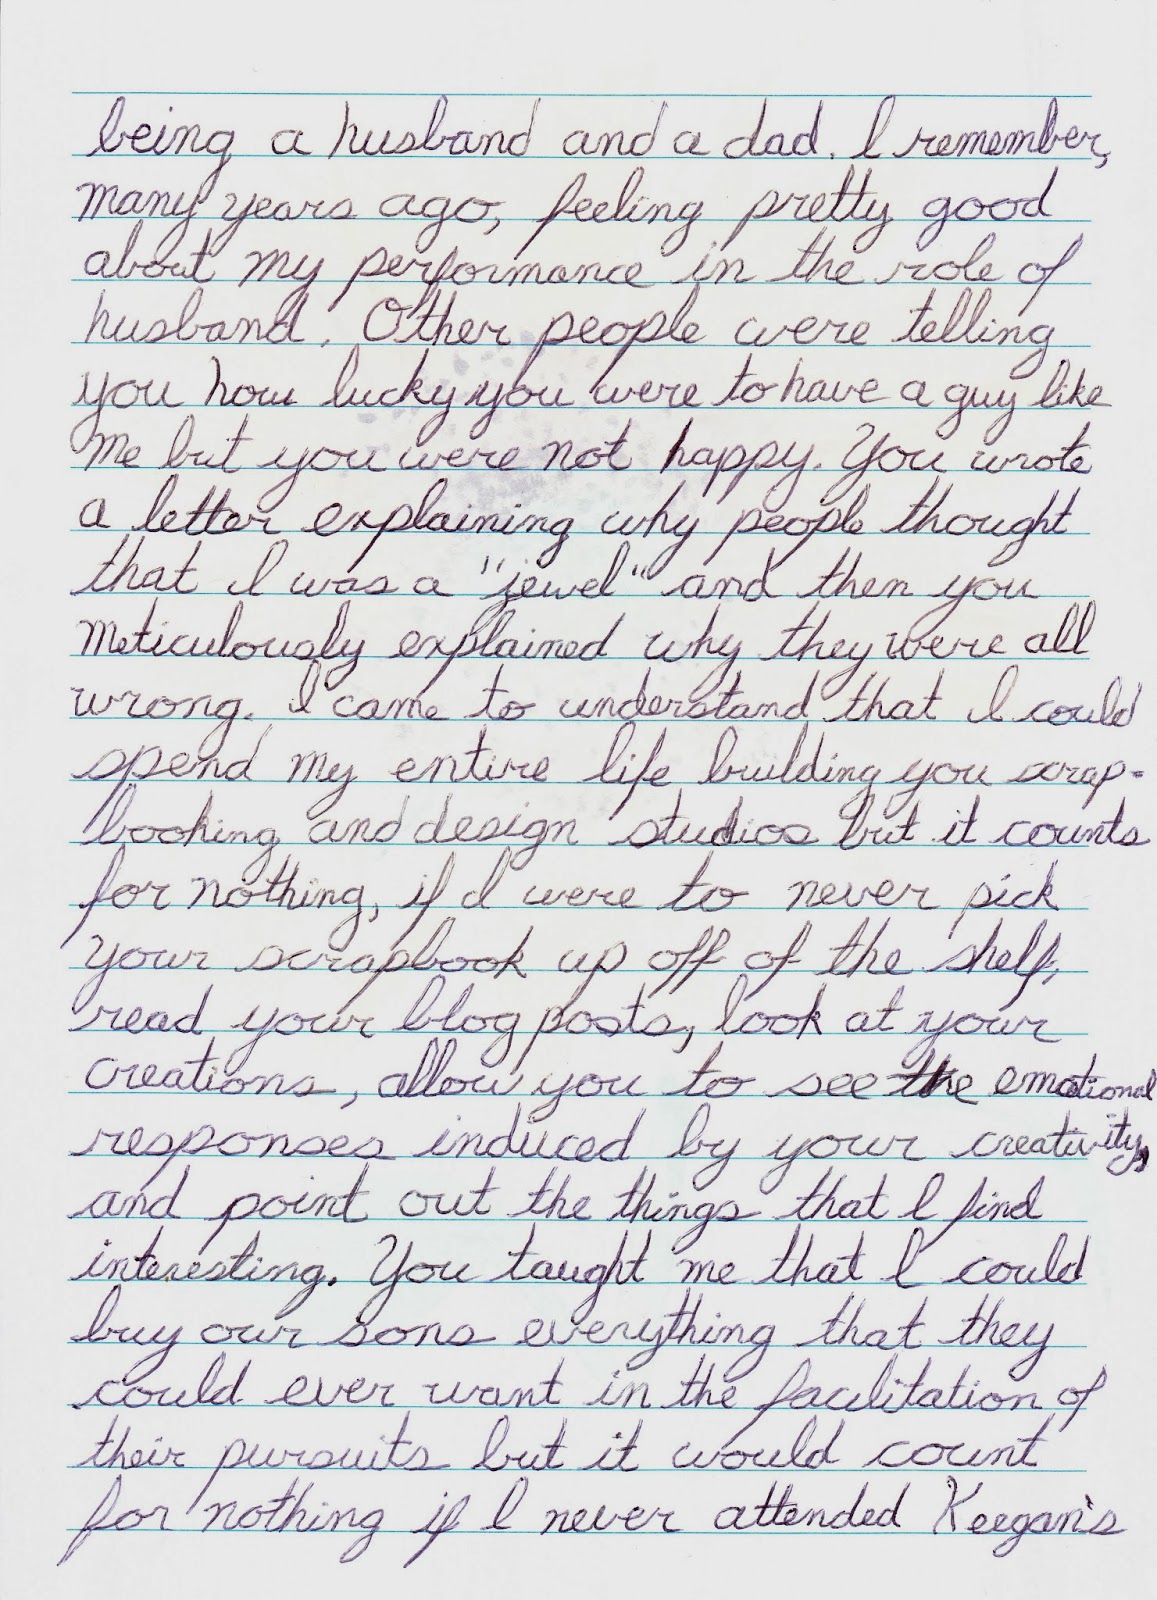 being a husband and a dad. I remember,
many years ago, feeling pretty good
about my performance in the role of
husband. Other people were telling
you how lucky you were to have a guy like
me but you were not happy. You wrote
a letter explaining why people thought
that I was a "jewel" and then you
meticulously explained why they were all
wrong. I came to understand that I could
spend my entire life building you scrap-
booking and design studios but it counts
for nothing, if I were to never pick
your scrapbook up off of the shelf,
read your blog posts, look at your
creations, allow you to see the emotional
responses induced by your creativity,
and point out the things that I find
interesting. You taught me that I could
buy our sons everything that they
could ever want in the facilitation of
their pursuits but it would count
for nothing if I never attended Keegan's